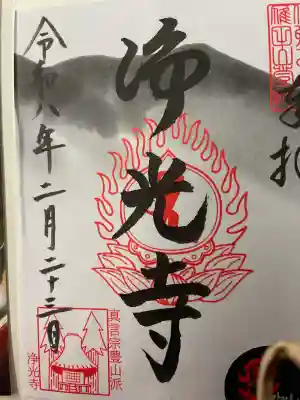 雁田山
奉拝
浄光寺
令和八年二月二十三日
真言宗豊山派
浄光寺